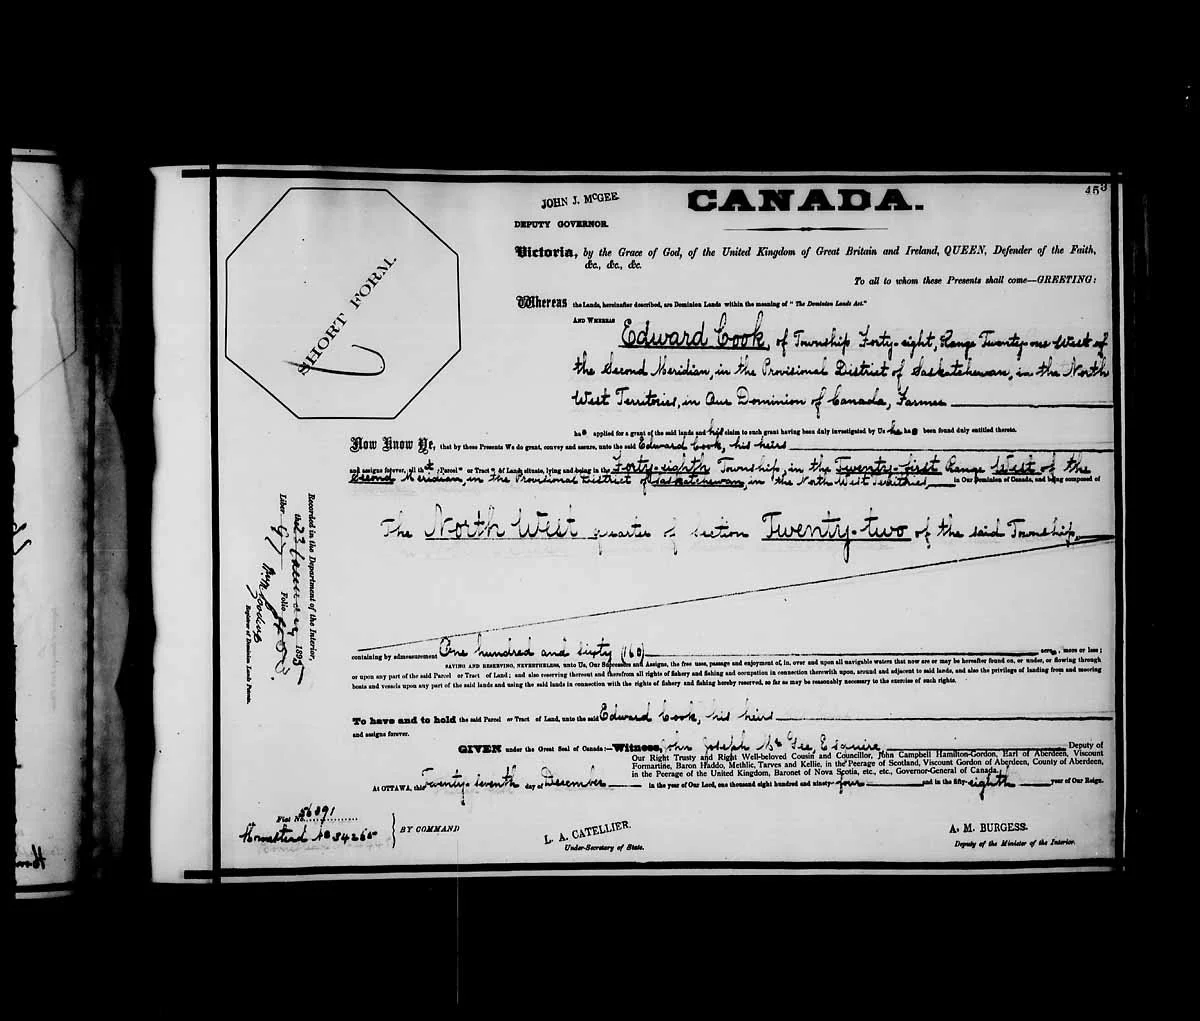 453
CANADA.
JOHN J. McGEE
DEPUTY GOVERNOR.
SHORT FORM.
Victoria, by the Grace of God, of the United Kingdom of Great Britain and Ireland, QUEEN, Defender of the Faith,
&c., &c., &c.
To all to whom these Presents shall come—GREETING:
Whereas the Lands, hereinafter described, are Dominion Lands within the meaning of "The Dominion Lands Act."
AND WHEREAS Edward Cook, of Township Forty-eight, Range Twenty-one West of
the Second Meridian, in the Provisional District of Saskatchewan, in the North
West Territories, in Our Dominion of Canada, Farmer
has applied for a grant of the said lands and his claim to such grant having been duly investigated by Us he has been found duly entitled thereto.
Now Know Ye, that by these Presents We do grant, convey and assure, unto the said Edward Cook, his heirs
and assigns forever, all that Parcel or Tract of Land, situate, lying and being in the Forty-eighth Township, in the Twenty-first Range West of the
Second Meridian, in the Provisional District of Saskatchewan, in the North West Territories, in Our Dominion of Canada, and being composed of
The North West quarter of Section Twenty-two of the said Township,
containing by admeasurement One hundred and sixty (160) acres, more or less;
SAVING AND RESERVING, NEVERTHELESS, unto Us, Our Successors and Assigns, the free uses, passage and enjoyment of, in, over and upon all navigable waters that now are or may be hereafter found on, or under, or flowing through
or upon any part of the said Parcel or Tract of Land; and also reserving thereout and therefrom all rights of fishery and fishing and occupation in connection therewith upon, around and adjacent to said lands, and also the privilege of landing from and mooring
boats and vessels upon any part of the said lands and using the said lands in connection with the rights of fishery and fishing hereby reserved, so far as may be reasonably necessary to the exercise of such rights.
To have and to hold the said Parcel or Tract of Land, unto the said Edward Cook, his heirs
and assigns forever.
GIVEN under the Great Seal of Canada:—Witness, John Joseph McGee, Esquire, Deputy of
Our Right Trusty and Right Well-beloved Cousin and Councillor, John Campbell Hamilton-Gordon, Earl of Aberdeen, Viscount
Formartine, Baron Haddo, Methlic, Tarves and Kellie, in the Peerage of Scotland, Viscount Gordon of Aberdeen, County of Aberdeen,
in the Peerage of the United Kingdom, Baronet of Nova Scotia, etc., etc., Governor-General of Canada.
At OTTAWA, this Twenty-seventh day of December in the year of Our Lord, one thousand eight hundred and ninety-four and in the fifty-eighth year of Our Reign.
Fiat No. 56391
Homestead No 34265
BY COMMAND
L. A. CATELLIER.
Under-Secretary of State.
A. M. BURGESS.
Deputy of the Minister of the Interior.
Recorded in the Department of the Interior,
this 23 January 1895
Liber 97 Folio 453
Register of Dominion Lands Patents.